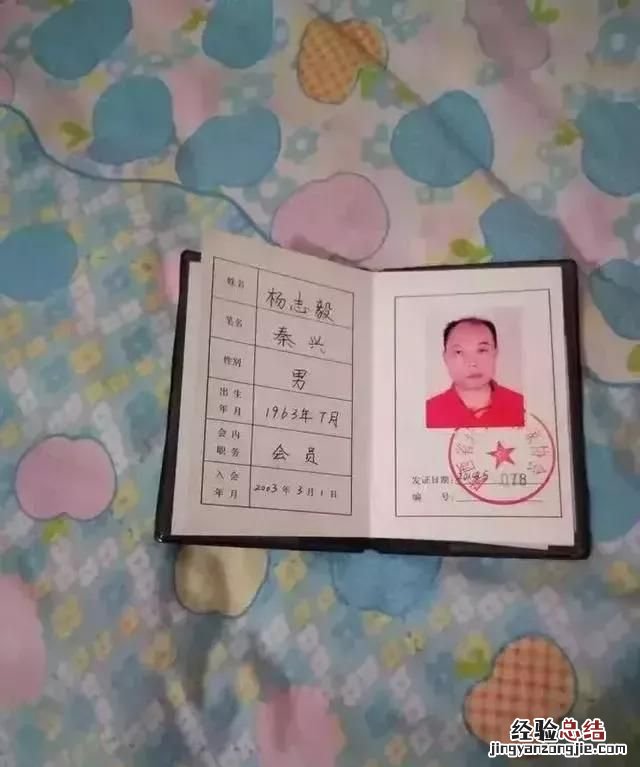 姓名 杨志毅
笔名 秦兴
性别 男
出生年月 1963年7月
会内职务 会员
入会年月 2003年3月1日
发证日期:
078
编号:
经验总结
jingyanzongjie.com